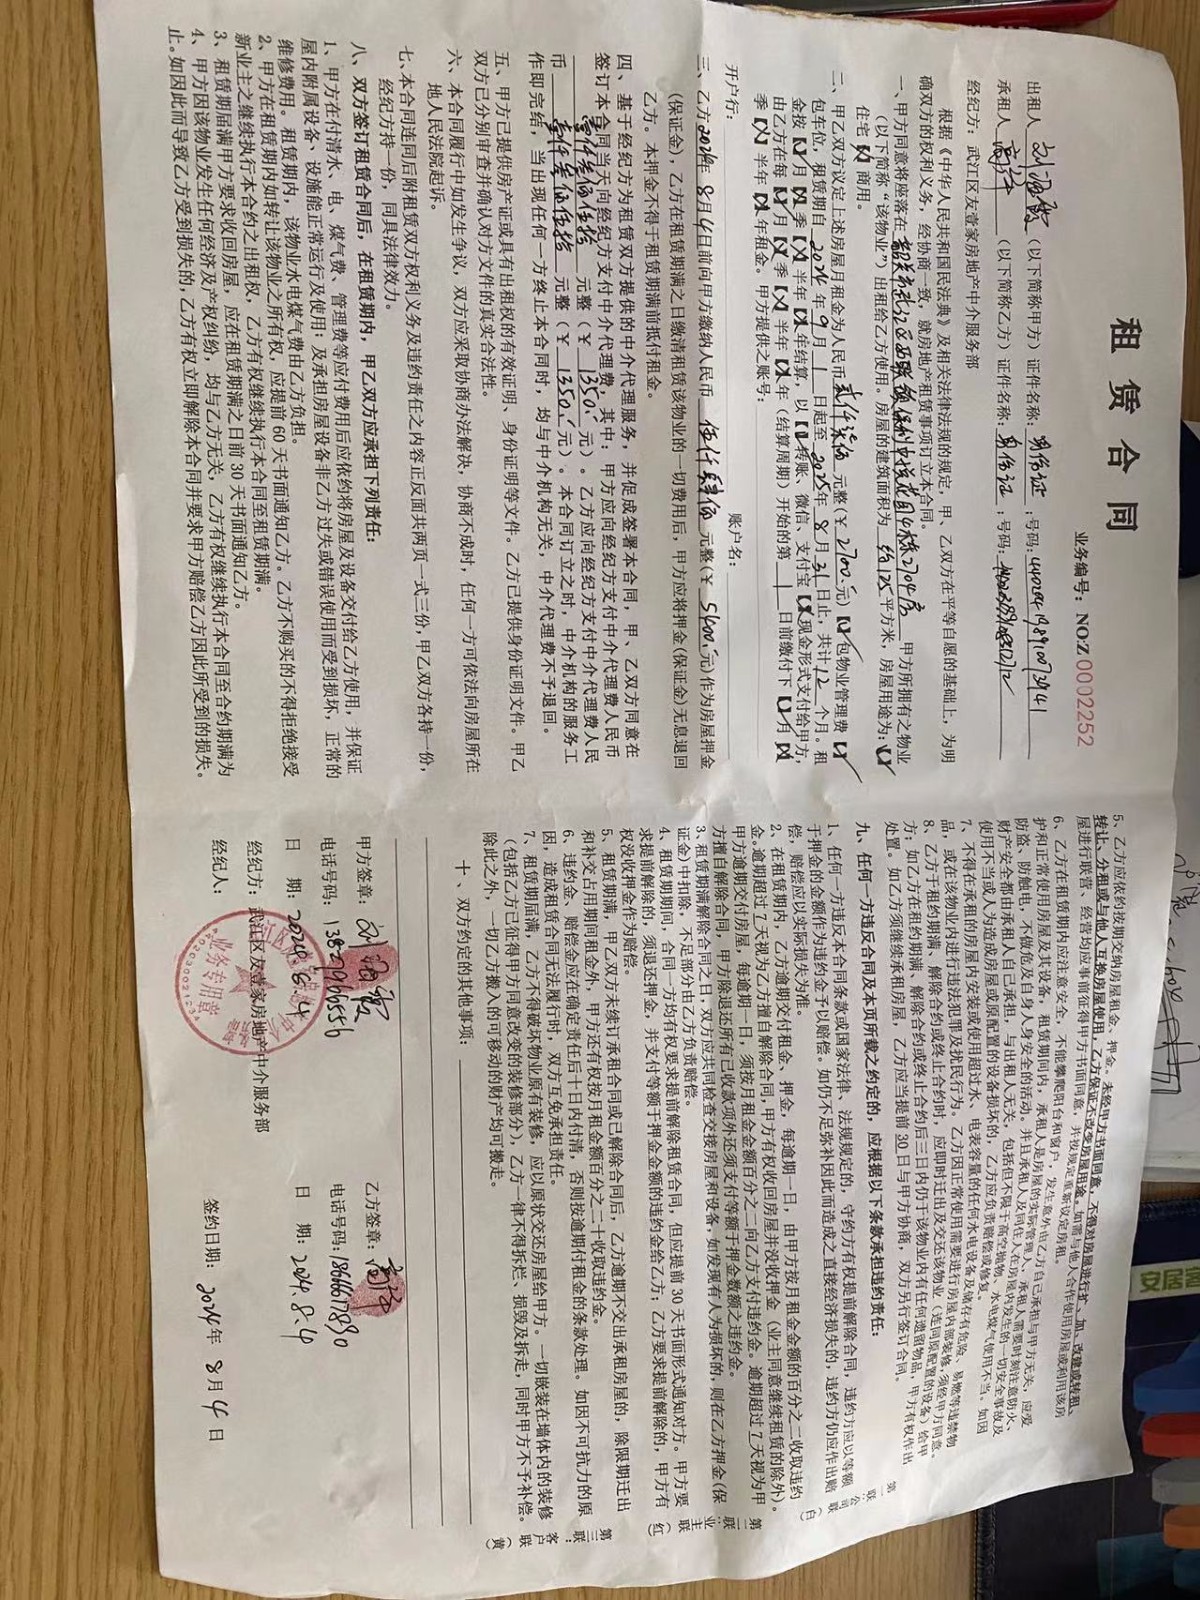 租 赁 合 同
业务编号：NO:Z 0002252
出租人 （以下简称甲方）证件名称：身份证；号码：
承租人 （以下简称乙方）证件名称：身份证；号码：
经纪方：武江区友壹家房地产中介服务部
根据《中华人民共和国民法典》及相关法律法规的规定，甲、乙双方在平等自愿的基础上，为明
确双方的权利义务，经协商一致，就房地产租赁事项订立本合同。
一、甲方同意将座落在 韶关市武江区 保利中悦花园4栋2704房 甲方所拥有之物业
（以下简称“该物业”）出租给乙方使用。房屋的建筑面积为 约125平方米，房屋用途为：【√】
住宅【×】商用。
二、甲乙双方议定上述房屋月租金为人民币 贰仟柒佰 元整（￥2700.元）【√】包物业管理费【√】
包车位，租赁期自 2024 年 9 月 1 日起至 2025年 8 月 31 日止，共计 12 个月。租
金按【√】月【×】季【×】半年【×】年结算，以【√】转账、微信、支付宝【×】现金形式支付给甲方，
由乙方在每【√】月【×】季【×】半年【×】年（结算周期）开始的第 1 日前缴付下【√】月【×】
季【×】半年【×】年租金。甲方提供之账号：
开户行： 账户名：
三、乙方2024年 8月4日前向甲方缴纳人民币 伍仟肆佰 元整（￥5400.元）作为房屋押金
（保证金），乙方在租赁期满之日缴清租赁该物业的一切费用后，甲方应将押金（保证金）无息退回
乙方。本押金不得于租赁期满前抵付租金。
四、基于经纪方为租赁双方提供的中介代理服务，并促成签署本合同，甲、乙双方同意在
签订本合同当天向经纪方支付中介代理费，其中：甲方应向经纪方支付中介代理费人民币
壹仟叁佰伍拾 元整（￥1350.元）。乙方应向经纪方支付中介代理费人民
币 壹仟叁佰伍拾 元整（￥1350.元）。本合同订立之时，中介机构的服务工
作即完结，当出现任何一方终止本合同时，均与中介机构无关，中介代理费不予退回。
五、甲方已提供房产证或具有出租权的有效证明、身份证明等文件。乙方已提供身份证明文件。甲乙
双方已分别审查并确认对方文件的真实合法性。
六、本合同履行中如发生争议，双方应采取协商办法解决，协商不成时，任何一方可依法向房屋所在
地人民法院起诉。
七、本合同连同后附租赁双方权利义务及违约责任之内容正反面共两页一式三份，甲乙双方各持一份，
经纪方持一份，同具法律效力。
八、双方签订租赁合同后，在租赁期内，甲乙双方应承担下列责任：
1、甲方在付清水、电、煤气费、管理费等应付费用后应依约将房屋及设备交付给乙方使用，并保证
屋内附属设备、设施能正常运行及使用；及承担房屋设备非乙方过失或错误使用而受到损坏，正常的
维修费用。租赁期内，该物业水电煤气费由乙方负担。
2、甲方在租赁期内如转让该物业之所有权，应提前60天书面通知乙方。乙方不购买的不得拒绝接受
新业主之继续执行本合约之出租权，乙方有权继续执行本合同至租赁期满。
3、租赁期届满甲方要求收回房屋，应在租赁期满之日前30天书面通知乙方。
4、甲方因该物业发生任何经济及产权纠纷，均与乙方无关，乙方有权继续执行本合同至合约期满为
止。如因此而导致乙方受到损失的，乙方有权立即解除本合同并要求甲方赔偿乙方因此所受到的损失。
5、乙方应依约按期交纳房屋租金、押金。未经甲方书面同意，不得对房屋进行拆、加、改建或转租、
转让、分租或与他人互换房屋使用，乙方保证不改变房屋用途。如需与他人合作使用房屋或利用该房
屋进行联营、经营均应事前征得甲方书面同意，并按规定重新议定房租。
6、乙方在租赁期内应注意安全，不能攀爬阳台和窗户，发生意外由乙方自己承担与甲方无关，应爱
护和正常使用房屋及其设备，租赁期间内，承租人是房屋的实际管理人，承租人需要时刻注意防火、
防盗、防触电，不做危及自身人身安全的活动。并且承租人及同住人在房屋内发生的一切安全事故及
财产安全都由承租人自己承担，与出租人无关，包括但不限于高空抛物、水电煤气使用不当。如因
使用不当或人为造成房屋或原配置的设备损坏的，乙方应负责赔偿或修复。
7、不得在承租的房屋内安装或使用超过水、电表容量的任何水电设备及储存有危险、易燃等违禁物
品，或在该物业内进行违法犯罪及扰民行为。乙方因正常使用需要进行房屋内部装修，须经甲方同意。
8、乙方于租约期满、解除合约或终止合约时，应即时迁出及交还该物业（连同原配置的设备）给甲
方；如乙方在租约期满、解除合约或终止合约后三日内仍于该物业内有任何遗留物品，甲方有权作出
处置。如乙方须继续承租房屋，乙方应当提前30日与甲方协商，双方另行签订合同。
九、任何一方违反合同及本页所载之约定的，应根据以下条款承担违约责任：
1、任何一方违反本合同条款或国家法律、法规规定的，守约方有权提前解除合同，违约方应以等额
于押金的金额作为违约金予以赔偿。如仍不足弥补因此而造成之直接经济损失的，违约方仍应作出赔
偿，赔偿应以实际损失为准。
2、在租赁期内，乙方逾期交付租金、押金，每逾期一日，由甲方按月租金金额的百分之二收取违约
金。逾期超过7天视为乙方擅自解除合同，甲方有权收回房屋并没收押金（业主同意继续租赁的除外）。
甲方逾期交付房屋，每逾期一日，须按月租金金额百分之二向乙方支付违约金。逾期超过7天视为甲
方擅自解除合同，甲方除退还所有已收款项外还须支付等额于押金数额之违约金。
3、租赁期满解除合同之日，双方应共同检查交接房屋和设备，如发现有人为损坏的，则在乙方押金（保
证金）中扣除，不足部分由乙方负责赔偿。
4、租赁期间，合同一方均有权要求提前解除租赁合同，但应提前30天书面形式通知对方。甲方要
求提前解除的，须退还押金，并支付等额于押金金额的违约金给乙方；乙方要求提前解除的，甲方有
权没收押金作为赔偿。
5、租赁期满，甲乙双方未续订承租合同或已解除合同后，乙方逾期不交出承租房屋的，除限期迁出
和补交占用期间租金外，甲方还有权按月租金额百分之二十收取违约金。
6、违约金、赔偿金应在确定责任后十日内付清，否则按逾期付租金的条款处理。如因不可抗力的原
因，造成租赁合同无法履行时，双方互免承担责任。
7、租赁期届满，乙方不得破坏物业原有装修，应以原状交还房屋给甲方。一切嵌装在墙体内的装修
（包括乙方已征得甲方同意改变的装修部分），乙方一律不得拆烂、损毁及拆走，同时甲方不予补偿。
除此之外，一切乙方搬入的可移动的财产均可搬走。
十、双方约定的其他事项：
甲方签章： 乙方签章：
电话号码：13827916556 电话号码：18666178890
日 期：2024.8.4 日 期：2024.8.4
经纪方：武江区友壹家房地产中介服务部
经纪人： 签约日期：2024年 8月4日
业务专用章
第一联：公司联（白）
第二联：业主联（红）
第三联：客户联（黄）
安居